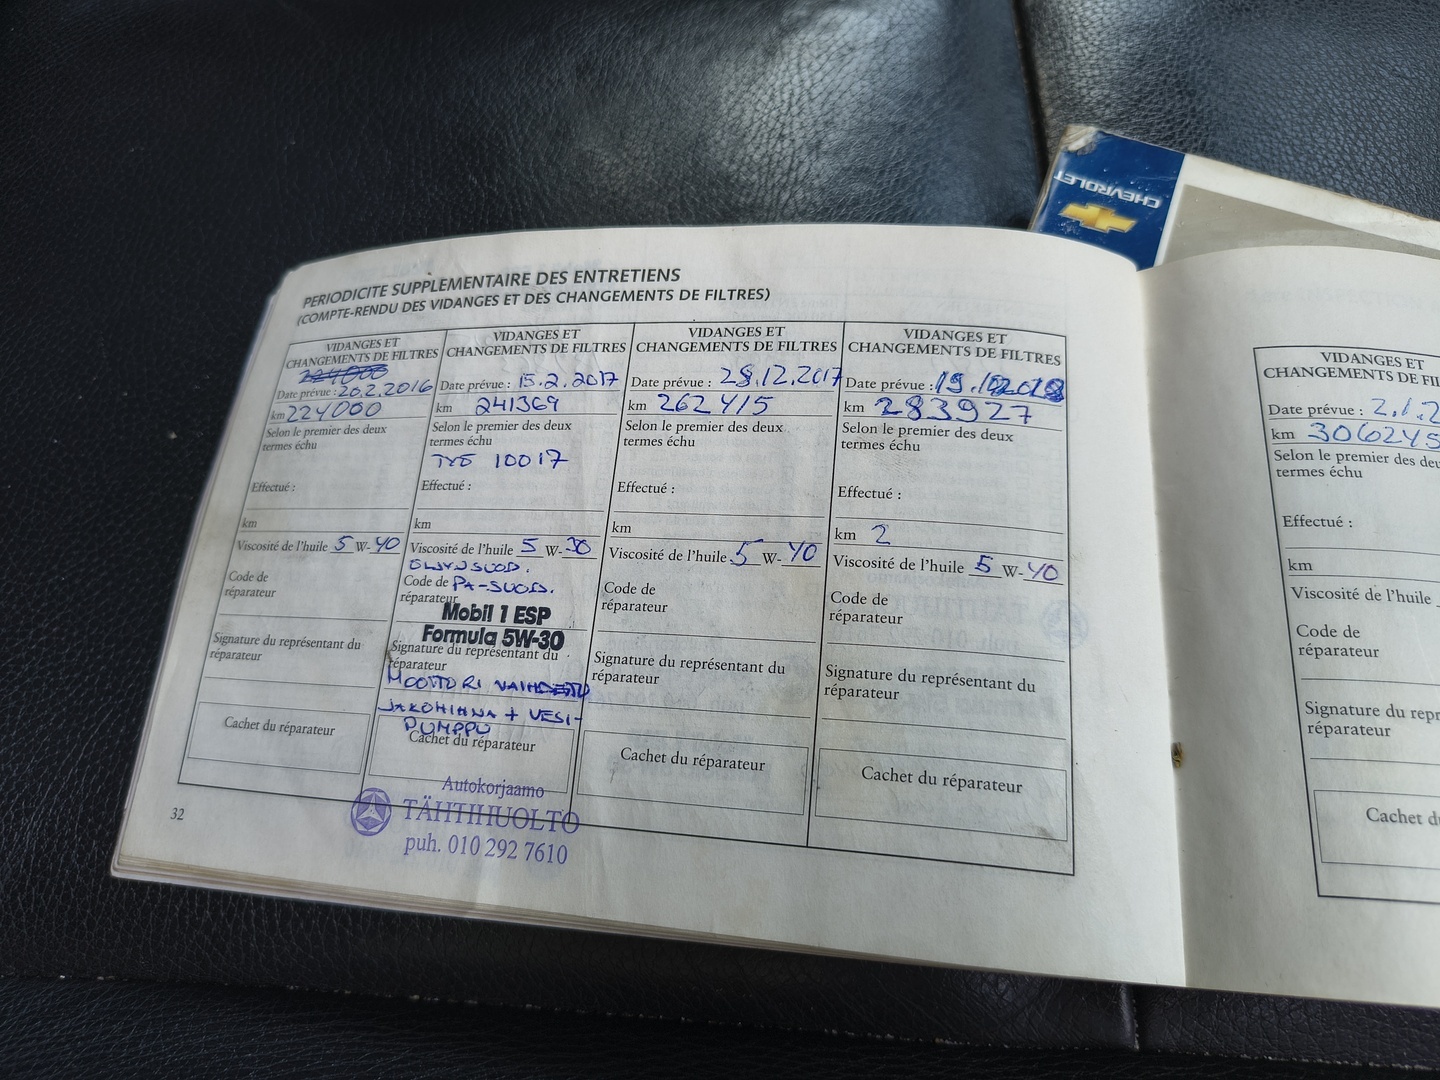 CHEVROLET
PERIODICITE SUPPLEMENTAIRE DES ENTRETIENS
(COMPTE-RENDU DES VIDANGES ET DES CHANGEMENTS DE FILTRES)
VIDANGES ET
CHANGEMENTS DE FILTRES
Date prévue : 20.2.2016
km 224000
Selon le premier des deux
termes échu
Effectué :
km
Viscosité de l'huile 5 W-40
Code de
réparateur
Signature du représentant du
réparateur
Cachet du réparateur
VIDANGES ET
CHANGEMENTS DE FILTRES
Date prévue : 15.2.2017
km 241369
Selon le premier des deux
termes échu
TYÖ 10017
Effectué :
km
Viscosité de l'huile 5 W-30
ÖLJYNSUOD.
Code de PA-SUOD.
réparateur
Mobil 1 ESP
Formula 5W-30
Signature du représentant du
réparateur
MOOTTORI VAIHDETTU
JAKOHIHNA + VESI-
PUMPPU
Cachet du réparateur
Autokorjaamo
TÄHTIHUOLTO
puh. 010 292 7610
VIDANGES ET
CHANGEMENTS DE FILTRES
Date prévue : 28.12.2017
km 262415
Selon le premier des deux
termes échu
Effectué :
km
Viscosité de l'huile 5 W-40
Code de
réparateur
Signature du représentant du
réparateur
Cachet du réparateur
VIDANGES ET
CHANGEMENTS DE FILTRES
Date prévue :
km 283927
Selon le premier des deux
termes échu
Effectué :
km 2
Viscosité de l'huile 5 W-40
Code de
réparateur
Signature du représentant du
réparateur
Cachet du réparateur
32
VIDANGES ET
CHANGEMENTS DE FIL
Date prévue : 2.1.2
km 306245
Selon le premier des deu
termes échu
Effectué :
km
Viscosité de l'huile
Code de
réparateur
Signature du repr
réparateur
Cachet du